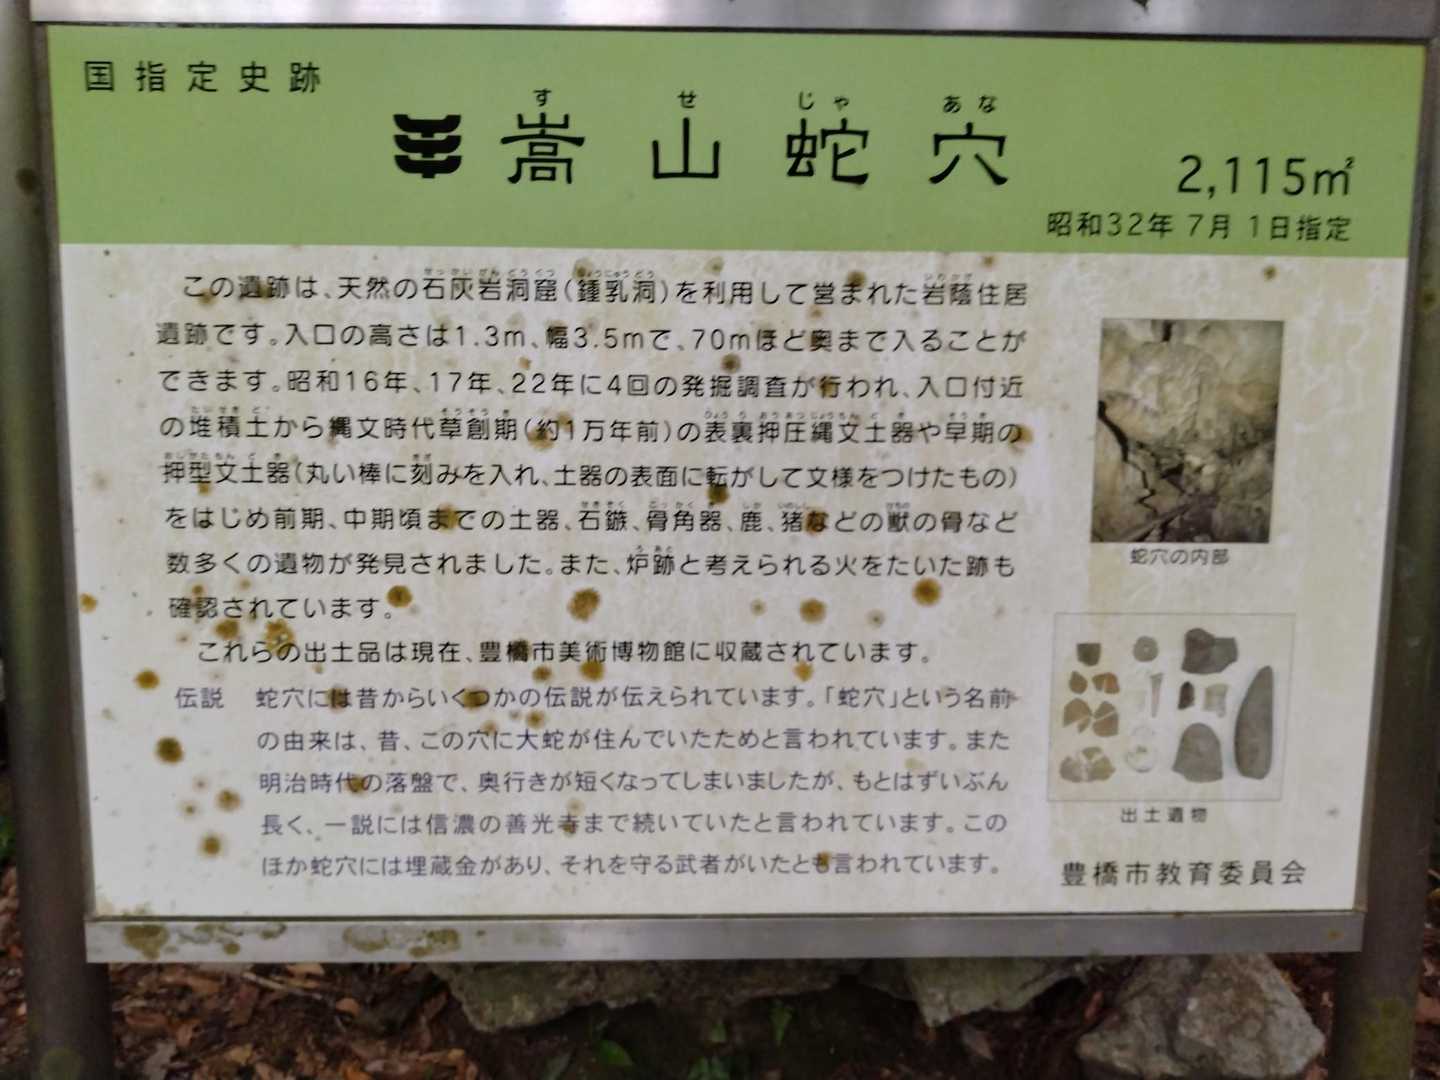 国指定史跡
す せ じゃ あな
嵩山蛇穴
2,115㎡
昭和32年 7月 1日指定
この遺跡は、天然の石灰岩洞窟(鍾乳洞)を利用して営まれた岩蔭住居
遺跡です。入口の高さは1.3m、幅3.5mで、70mほど奥まで入ることが
できます。昭和16年、17年、22年に4回の発掘調査が行われ、入口付近
の堆積土から縄文時代草創期(約1万年前)の表裏押圧縄文土器や早期の
押型文土器(丸い棒に刻みを入れ、土器の表面に転がして文様をつけたもの)
をはじめ前期、中期頃までの土器、石鏃、骨角器、鹿、猪などの獣の骨など
数多くの遺物が発見されました。また、炉跡と考えられる火をたいた跡も
確認されています。
これらの出土品は現在、豊橋市美術博物館に収蔵されています。
伝説 蛇穴には昔からいくつかの伝説が伝えられています。「蛇穴」という名前
の由来は、昔、この穴に大蛇が住んでいたためと言われています。また
明治時代の落盤で、奥行きが短くなってしまいましたが、もとはずいぶん
長く、一説には信濃の善光寺まで続いていたと言われています。この
ほか蛇穴には埋蔵金があり、それを守る武者がいたとも言われています。
蛇穴の内部
出土遺物
豊橋市教育委員会